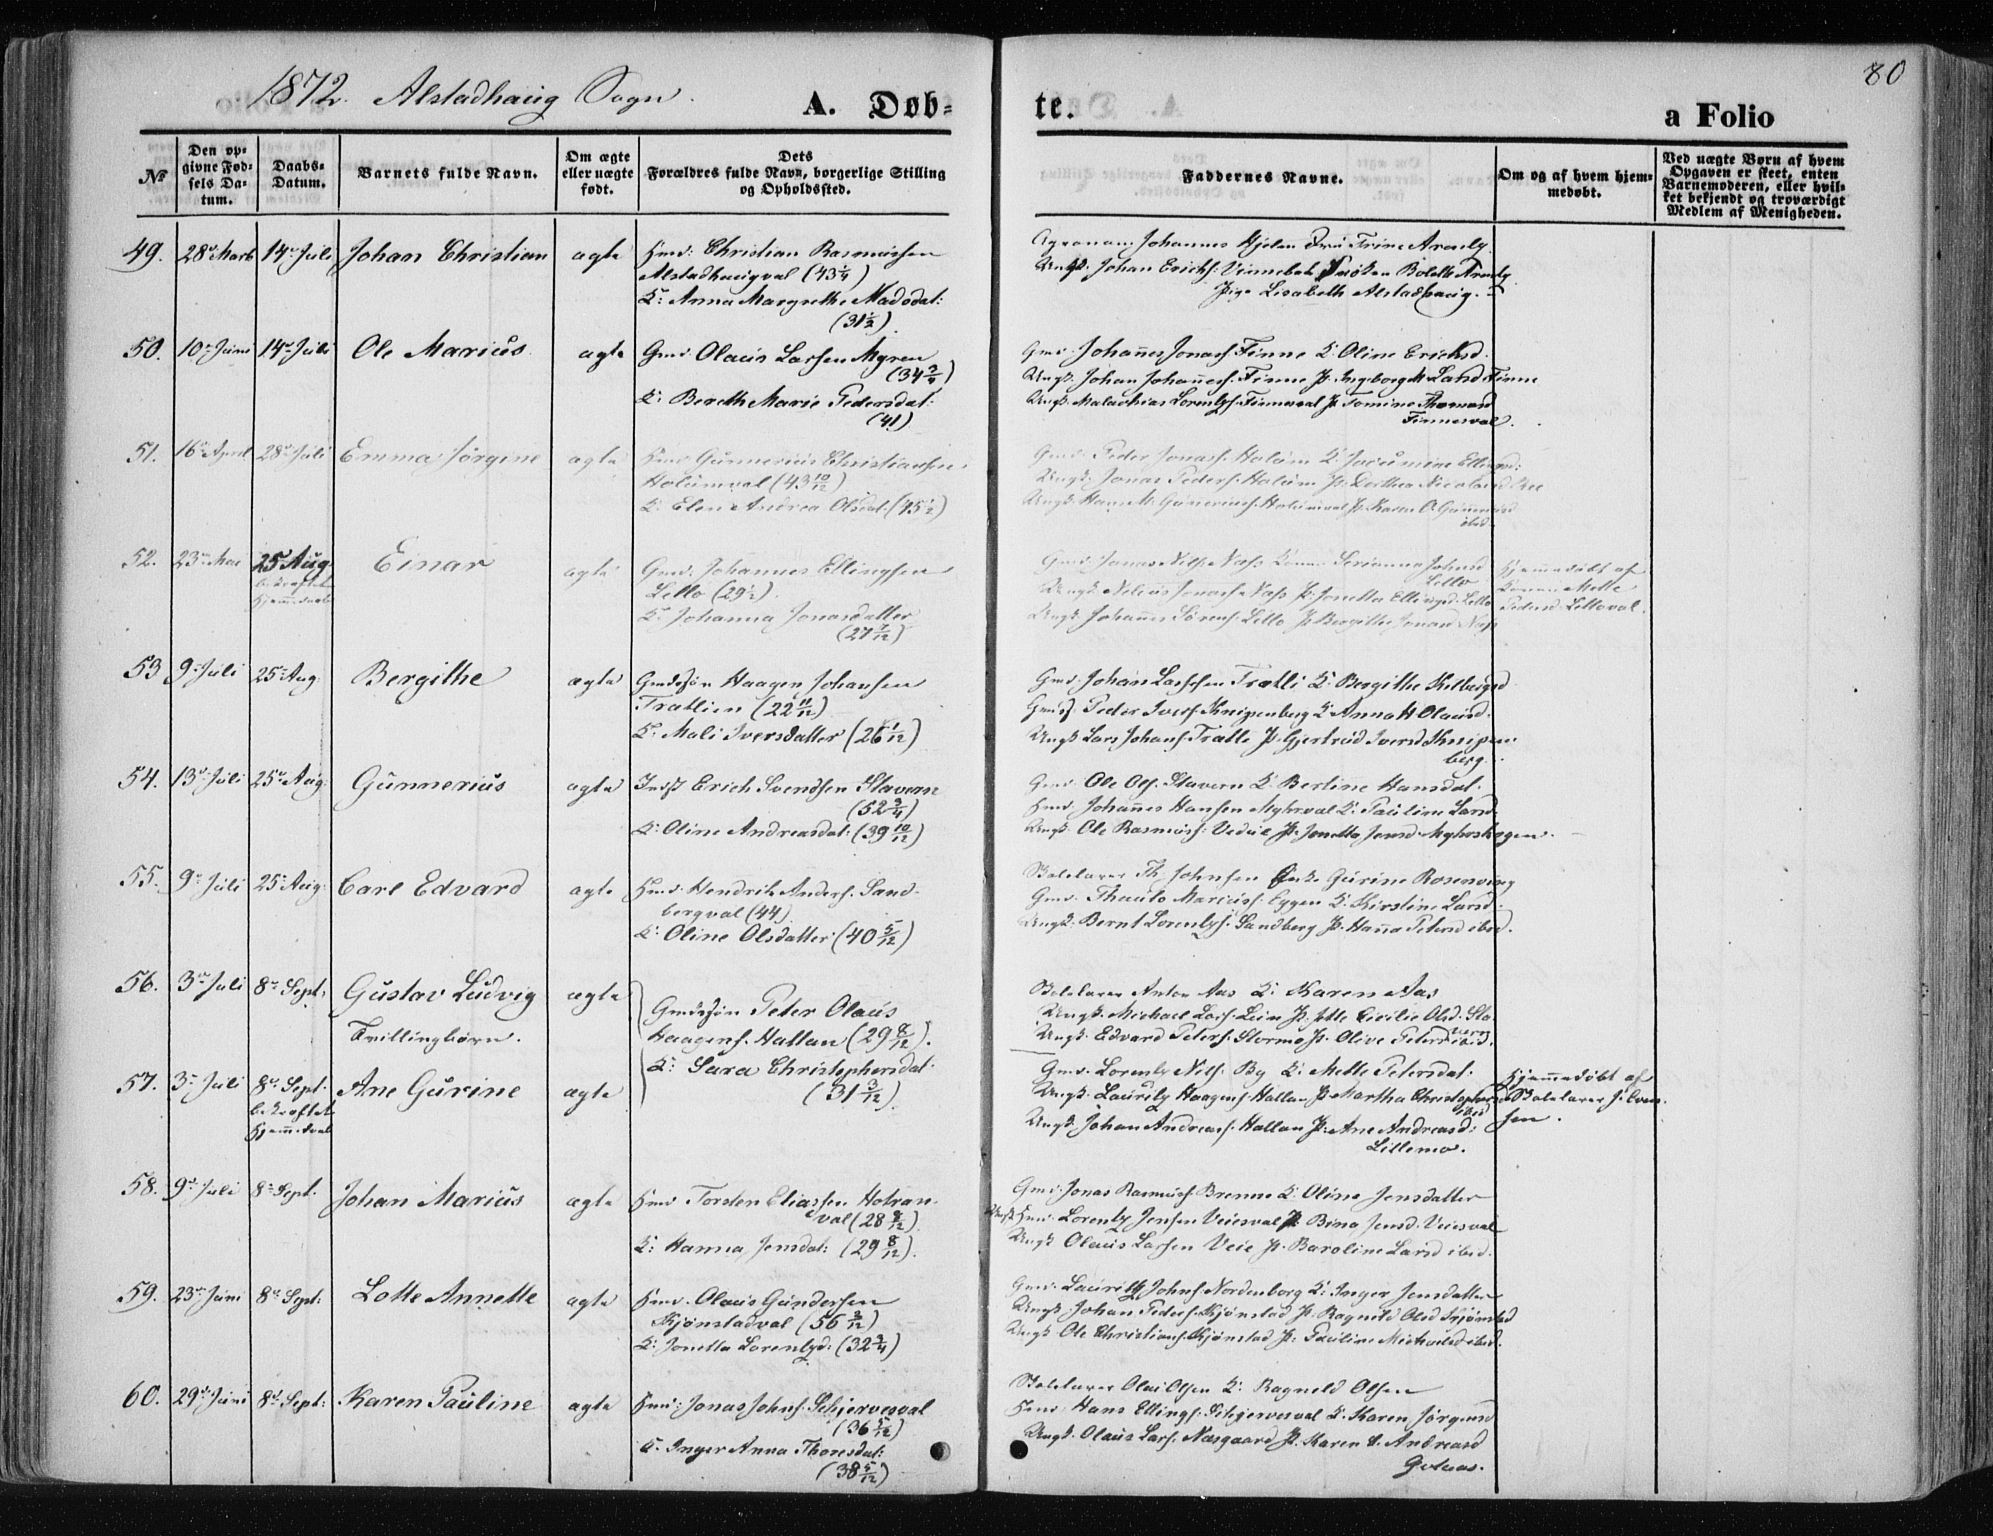 1872. Alstadhaug Sogn.
A. Døb=
te.
a Folio
80
№
Den op=
givne Fød=
sels Da=
tum.
Daabs=
Datum.
Barnets fulde Navn.
Om ægte
eller uægte
født.
Dets
Forældres fulde Navn, borgerlige Stilling
og Opholdssted.
Faddernes Navne.
Om og af hvem hjem=
medøbt.
Ved uægte Børn af hvem
Opgaven er skeet, enten
Barnemoderen, eller hvil=
ket bekjendt og troværdigt
Medlem af Menigheden.
49. 28de Marts 14de Juli Johan Christian ægte Hmd: Christian Rasmussen
Alstadhaugval (43 1/4)
K: Anna Margrethe Madsdat:
(31 1/2)
Agronom Johannes Hjelm Fru Trine Arnly
Ungk. Johan Erichs: Vinnebek Frøken Bolette Arnly
Pige Lisabeth Alstadhaug.
50. 10de Juni 14de Juli Ole Marius ægte Gmd: Olaus Larsen Myren
(34 3/4)
K: Bereth Marie Pedersdat:
(41)
Gmd: Johannes Jonass: Finne K: Oline Erichsd.
Ungk. Johan Johanness: Finne P: Ingeborg M. Larsd Finne
Ungk. Malachias Lorentzs: Finnesval P: Tomine Thomasd
Finnesval.
51. 16de April 28de Juli Emma Jørgine ægte Hmd: Gunnerius Christiansen
Holumval (43 10/12)
K: Elen Andrea Olsdat: (45 1/2)
Gmd: Peder Jonass: Holum K: Jocumine Ellingsd:
Ungk: Jonas Peders: Holum P: Dorthea Nicolaisd
Ungk: Hans M. Gunerius: Holumval P: Karen O. Guneriusd
ibid.
52. 23de Mai 25 Aug. Einar ægte Gmd: Johannes Ellingsen
bekræftet
Hjemmedaab
Lello (29 1/2)
K: Johanna Jonasdatter
(27 7/12)
Gmd: Jonas Nilss: Næss Kone Serianna Johnsd
Lello
Ungk: Nelius Jonass: Næss P: Jonetta Ellingsd: Lello
Ungk: Johannes Sørens: Lello P: Bergithe Jonasd Næss
Hjemmedøbt af
Konen Mette
Pedersd: Lelloval.
53 9de Juli 25de Aug. Bergithe ægte Gmdssøn Haagen Johansen
Trætlien (22 11/12)
K: Mali Iversdatter (26 1/12)
Gmd: Johan Larssen Trætli K: Bergithe
Gmds: Peder Iverss: Knipenberg K: Anna H Olausd:
Ungk Lars Johans: Trætte P: Gjertrud Iversd Knipen
berg.
54. 13de Juli 25de Aug: Gunnerius ægte Indst Erich Svendsen Stavern
(52 3/4)
K: Oline Andreasdat: (39 10/12)
Gmd: Ole Ols. Stavern K: Bertine Hansdat.
Hmd: Johannes Hansen Myhrval K: Pauline Larsd
Ungk: Ole Rasmuss: Vedul P: Jonetta Jensd: Myhrshagen.
55. 9de Juli 25de Aug: Carl Edvard ægte Hmd: Hendrik Anders: Sand=
bergval (44).
K: Oline Olsdatter (40 5/12)
Skolelærer Th Johnsen Enke Gurine Rosenving
Gmd: Thaulo Mariuss: Eggen K: Kirstine Larsd.
Ungk: Bernt Lorentzs: Sandberg P: Hanna Petersd ibid.
56. 3de Juli 8de Sept. Gustav Ludvig ægte
Tvillingbørn.
Gmdssøn Peter Olaus
Haagens. Hallan (29 8/12).
K: Sara Christophersdat:
(31 3/12).
Skolelærer Anton Aas K: Karen Aas
Ungk: Michael Lars: Lein P: Jette Cecilie Olsd. Sta
vern
Ungk: Edvard Peters: Stormo P: Olive Petersd ibid.
57. 3de Juli 8de Sept. Ane Gurine ægte
bekræftet
Hjemmedaab
Gmd: Lorentz Nils: By K: Mette Petersdat.
Ungk: Lauritz Haagens: Hallan P: Martha Christophersd
ibid
Ungk: Johan Andreass: Hallan P: Ane Andreasd:
Lillemo.
Hjemmedøbt af
Skolelærer Silven
sen.
58. 9de Juli 8de Sept. Johan Marius ægte Hmd Torsten Eliassen Hotran
val (28 8/12)
K: Hanna Jensdat: (29 8/12).
Gmd: Jonas Rasmuss: Brenne K: Oline Jensdatter
Hmd: Lorentz Jensen Veiesval P: Bina Jensd. Veiesval
Ungk Olaus Larsen Veie P: Karoline Larsd ibid.
59. 23de Juni 8de Sept: Lotte Annette ægte Hmd: Olaus Gundersen
Kjønstadval (56 3/12)
K: Jonetta Lorentzd: (32 3/4)
Gmd: Lauritz Johns: Nordenborg K: Inger Jensdatter
Ungk: Johan Peders: Kjønstad P: Ragnild Olsd Kjønstad
Ungk: Ole Christians: Kjønstad P: Pauline Michaelsd ibid.
60. 29de Juni 8de Sept: Karen Pauline ægte Hmd: Jonas Johns: Schjervesval
(36 5/12)
K: Inger Anna Thoresdat:
(38 5/12)
Skolelærer Olai Olsen K: Ragnild Olsen
Hmd: Hans Ellings: Schjervesval K: Karen Jørgensd
Ungk: Olaus Lars: Næsgaard P: Karen A. Andreasd